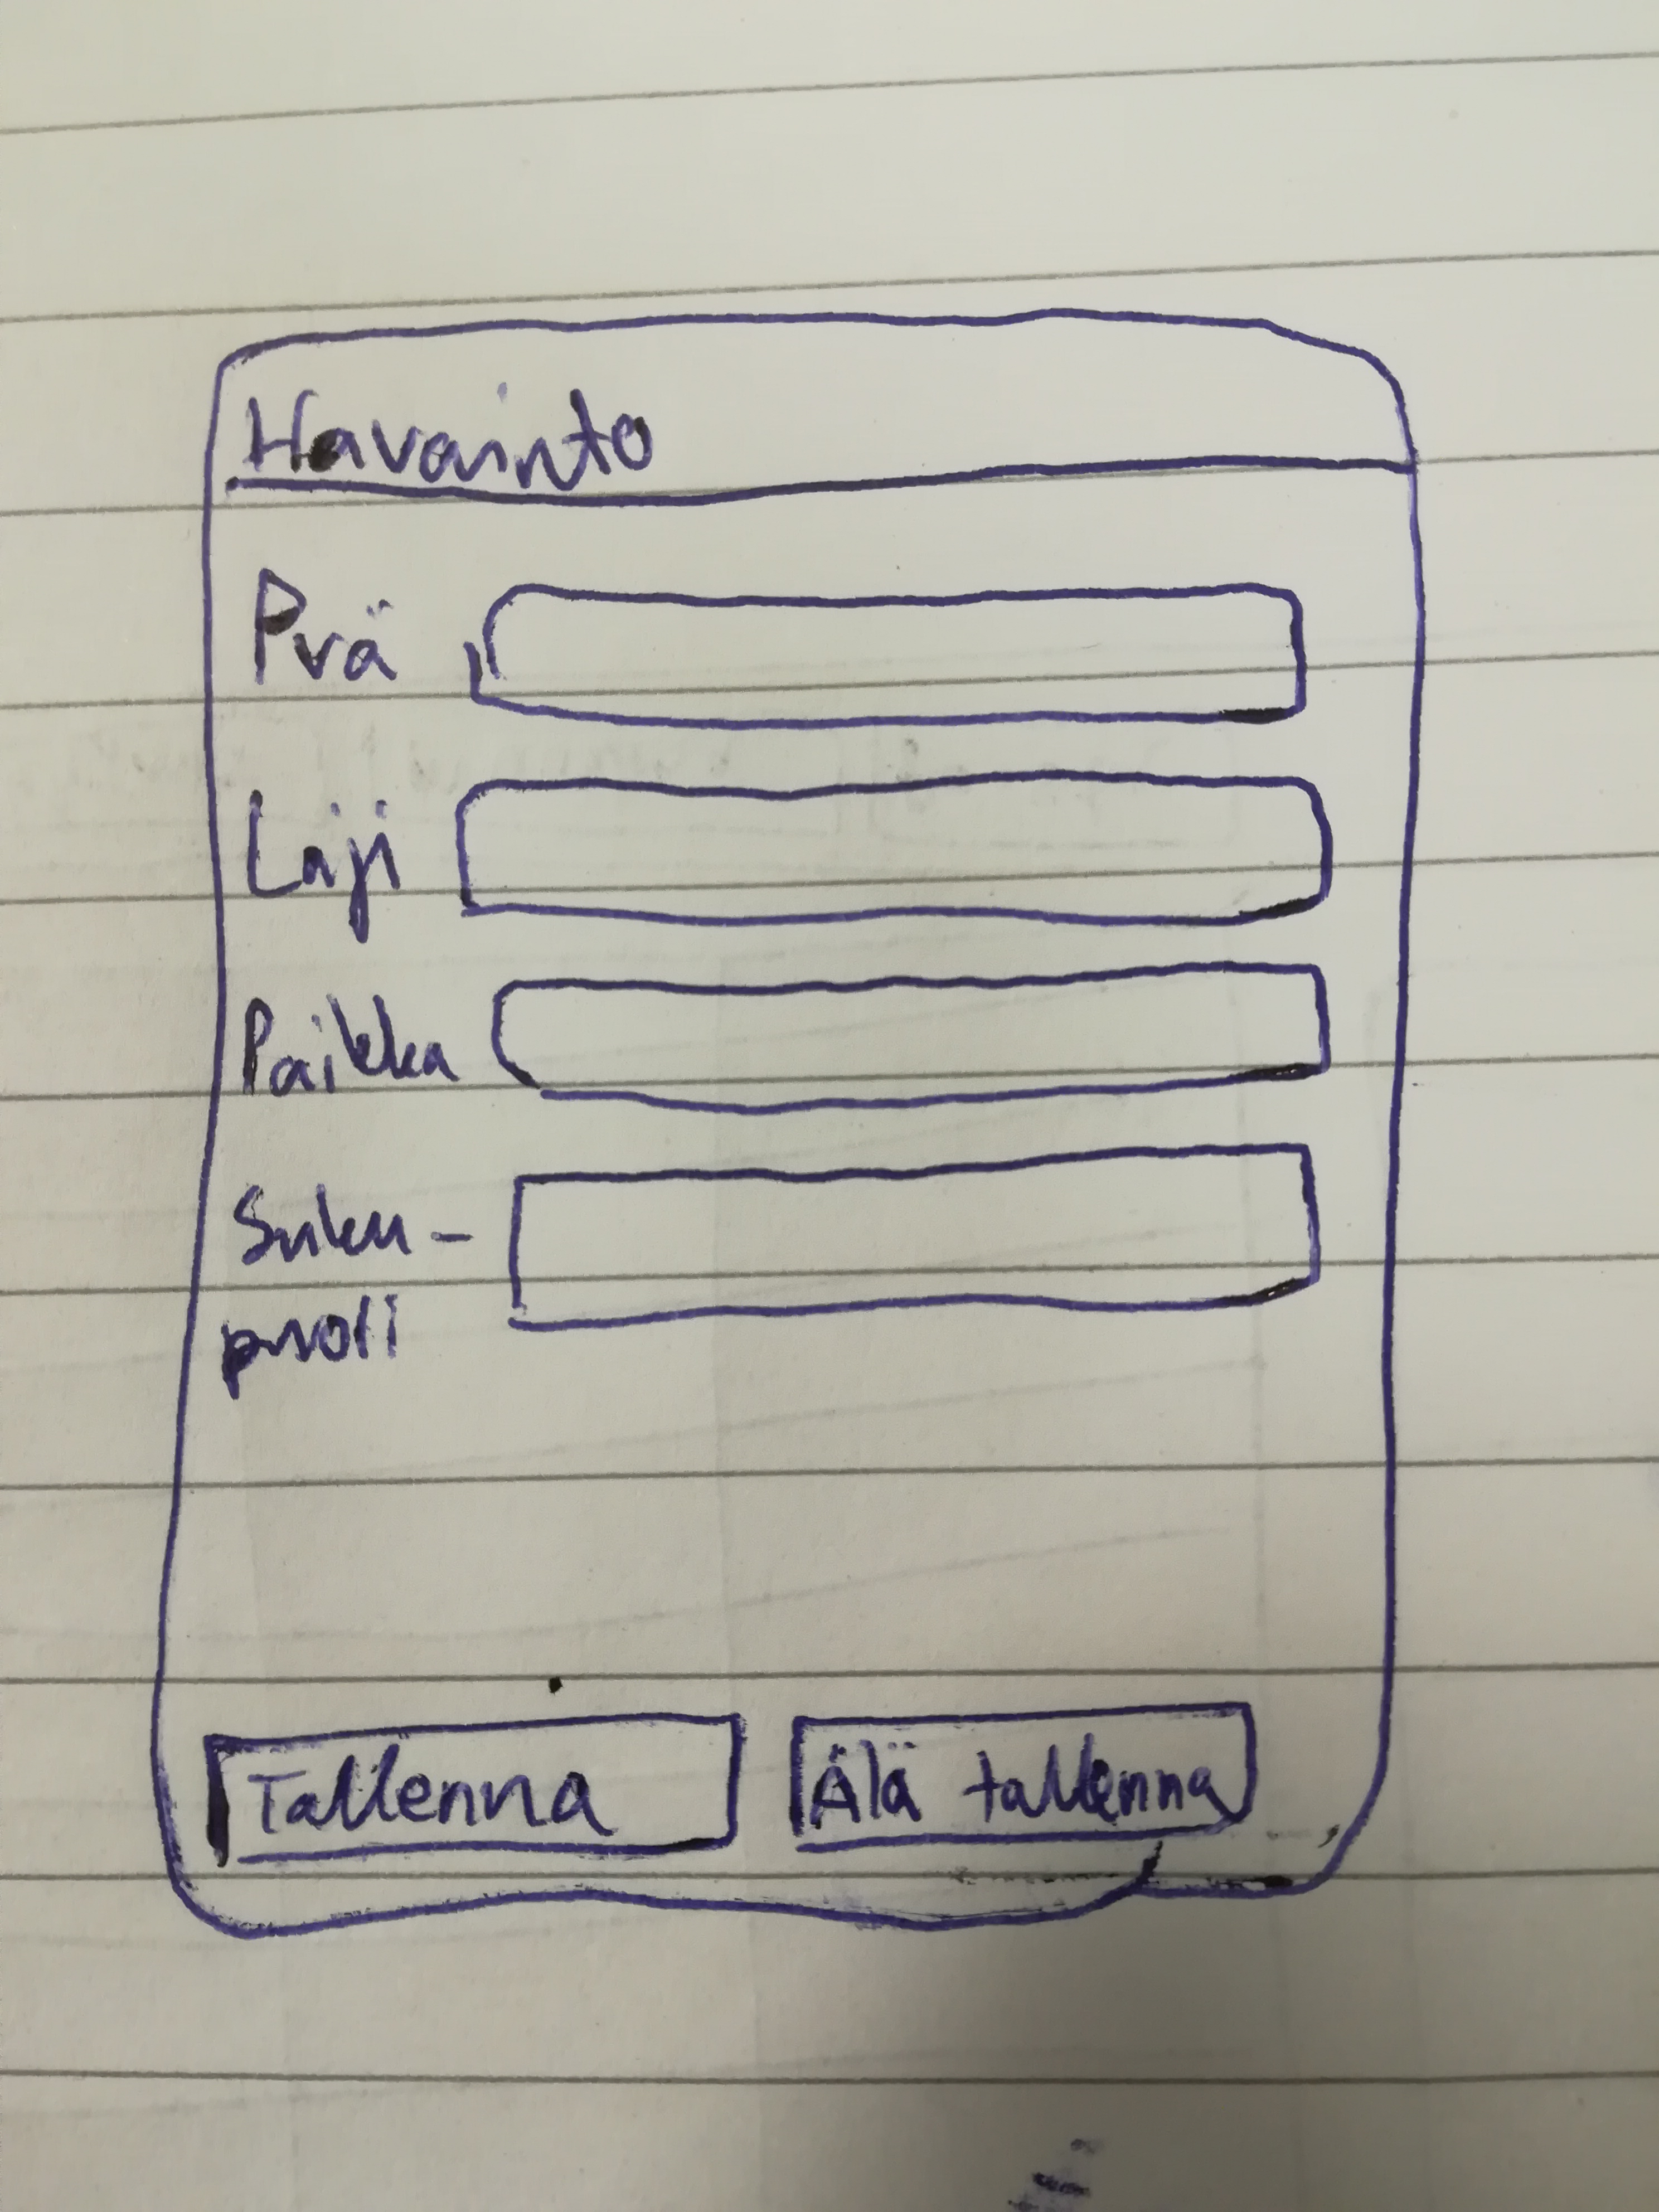 Havainto
Pvä
Laji
Paikka
Suku-
puoli
Tallenna
Älä tallenna